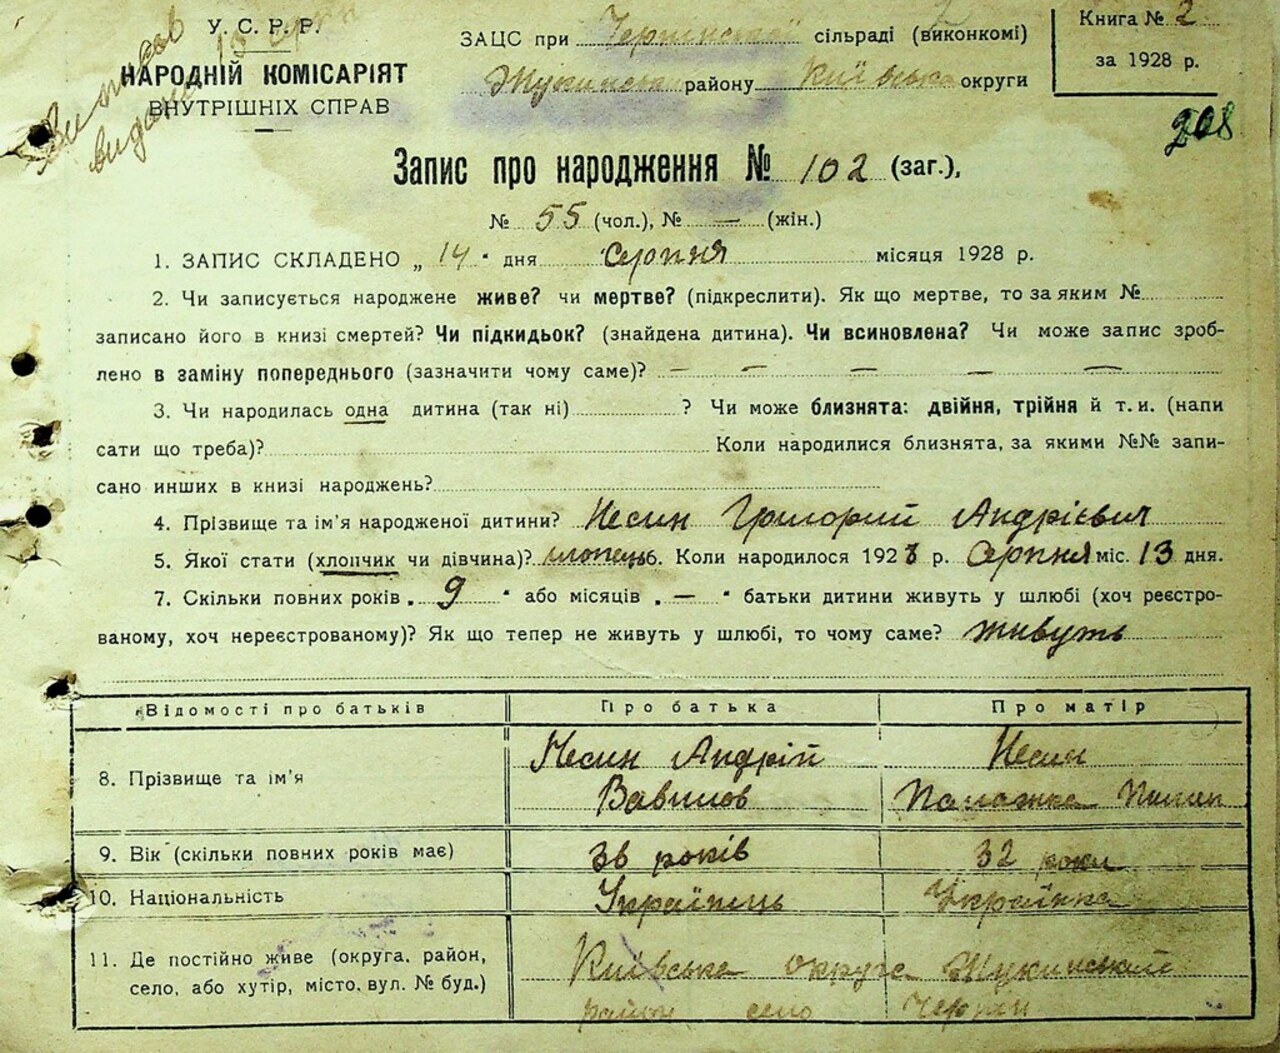 У. С. Р. Р.
НАРОДНІЙ КОМІСАРІЯТ
ВНУТРІШНІХ СПРАВ
ЗАЦС при сільраді (виконкомі)
району Київська округи
Книга № 2
за 1928 р.
208
Запис про народження № 102 (заг.),
№ 55 (чол.), № — (жін.)
1. ЗАПИС СКЛАДЕНО „ 14 " дня Серпня місяця 1928 р.
2. Чи записується народжене живе? чи мертве? (підкреслити). Як що мертве, то за яким №
записано його в книзі смертей? Чи підкидьок? (знайдена дитина). Чи всиновлена? Чи може запис зроб-
лено в заміну попереднього (зазначити чому саме)? — — — — —
3. Чи народилась одна дитина (так ні) ? Чи може близнята: двійня, трійня й т. и. (напи
сати що треба)? Коли народилися близнята, за якими №№ запи-
сано инших в книзі народжень?
4. Прізвище та ім'я народженої дитини? Несин Григорий Андрієвич
5. Якої стати (хлопчик чи дівчина)? хлопець 6. Коли народилося 1928 р. Серпня міс. 13 дня.
7. Скільки повних років „ 9 " або місяців „ — " батьки дитини живуть у шлюбі (хоч реєстро-
ваному, хоч нереєстрованому)? Як що тепер не живуть у шлюбі, то чому саме? живуть
Відомості про батьків Про батька Про матір
8. Прізвище та ім'я Несин Андрій Вавилов Несин
9. Вік (скільки повних років має) 36 років 32 роки
10. Національність Українець Українка
11. Де постійно живе (округа, район, Київська округа Жукинський
село, або хутір, місто, вул. № буд.) район село